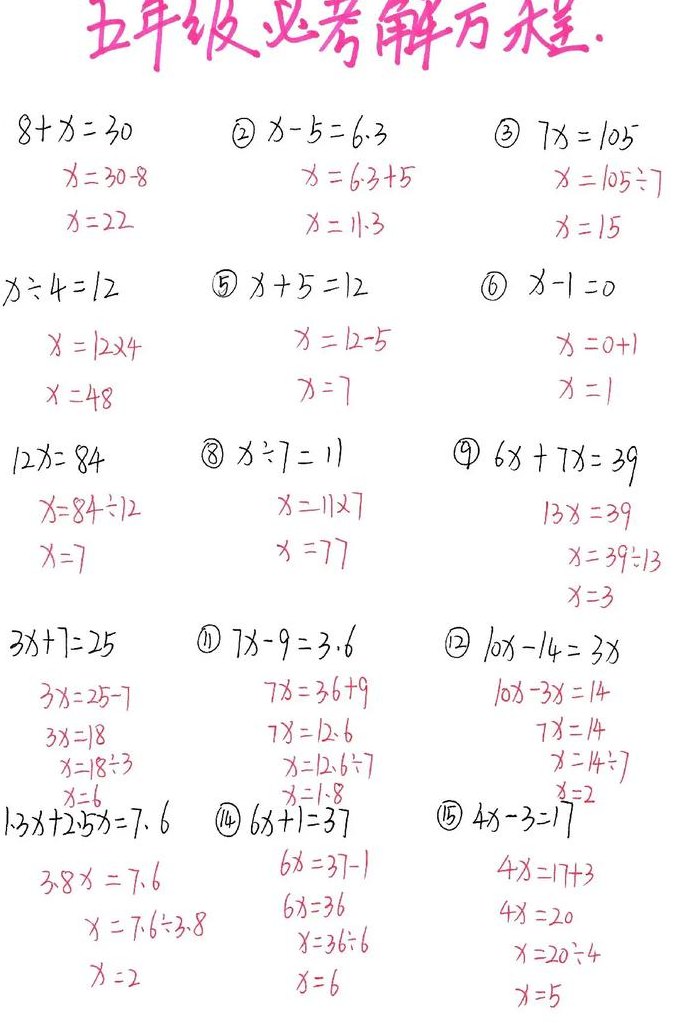 五年级必考解方程.
8+x=30 ② x-5=6.3 ③ 7x=105
x=30-8 x=6.3+5 x=105÷7
x=22 x=11.3 x=15
x÷4=12 ⑤ x+5=12 ⑥ x-1=0
x=12×4 x=12-5 x=0+1
x=48 x=7 x=1
12x=84 ⑧ x÷7=11 ⑨ 6x+7x=39
x=84÷12 x=11×7 13x=39
x=7 x=77 x=39÷13
x=3
3x+7=25 ⑪ 7x-9=3.6 ⑫ 10x-14=3x
3x=25-7 7x=3.6+9 10x-3x=14
3x=18 7x=12.6 7x=14
x=18÷3 x=12.6÷7 x=14÷7
x=6 x=1.8 x=2
1.3x+2.5x=7.6 ⑭ 6x+1=37 ⑮ 4x-3=17
3.8x=7.6 6x=37-1 4x=17+3
x=7.6÷3.8 6x=36 4x=20
x=2 x=36÷6 x=20÷4
x=6 x=5